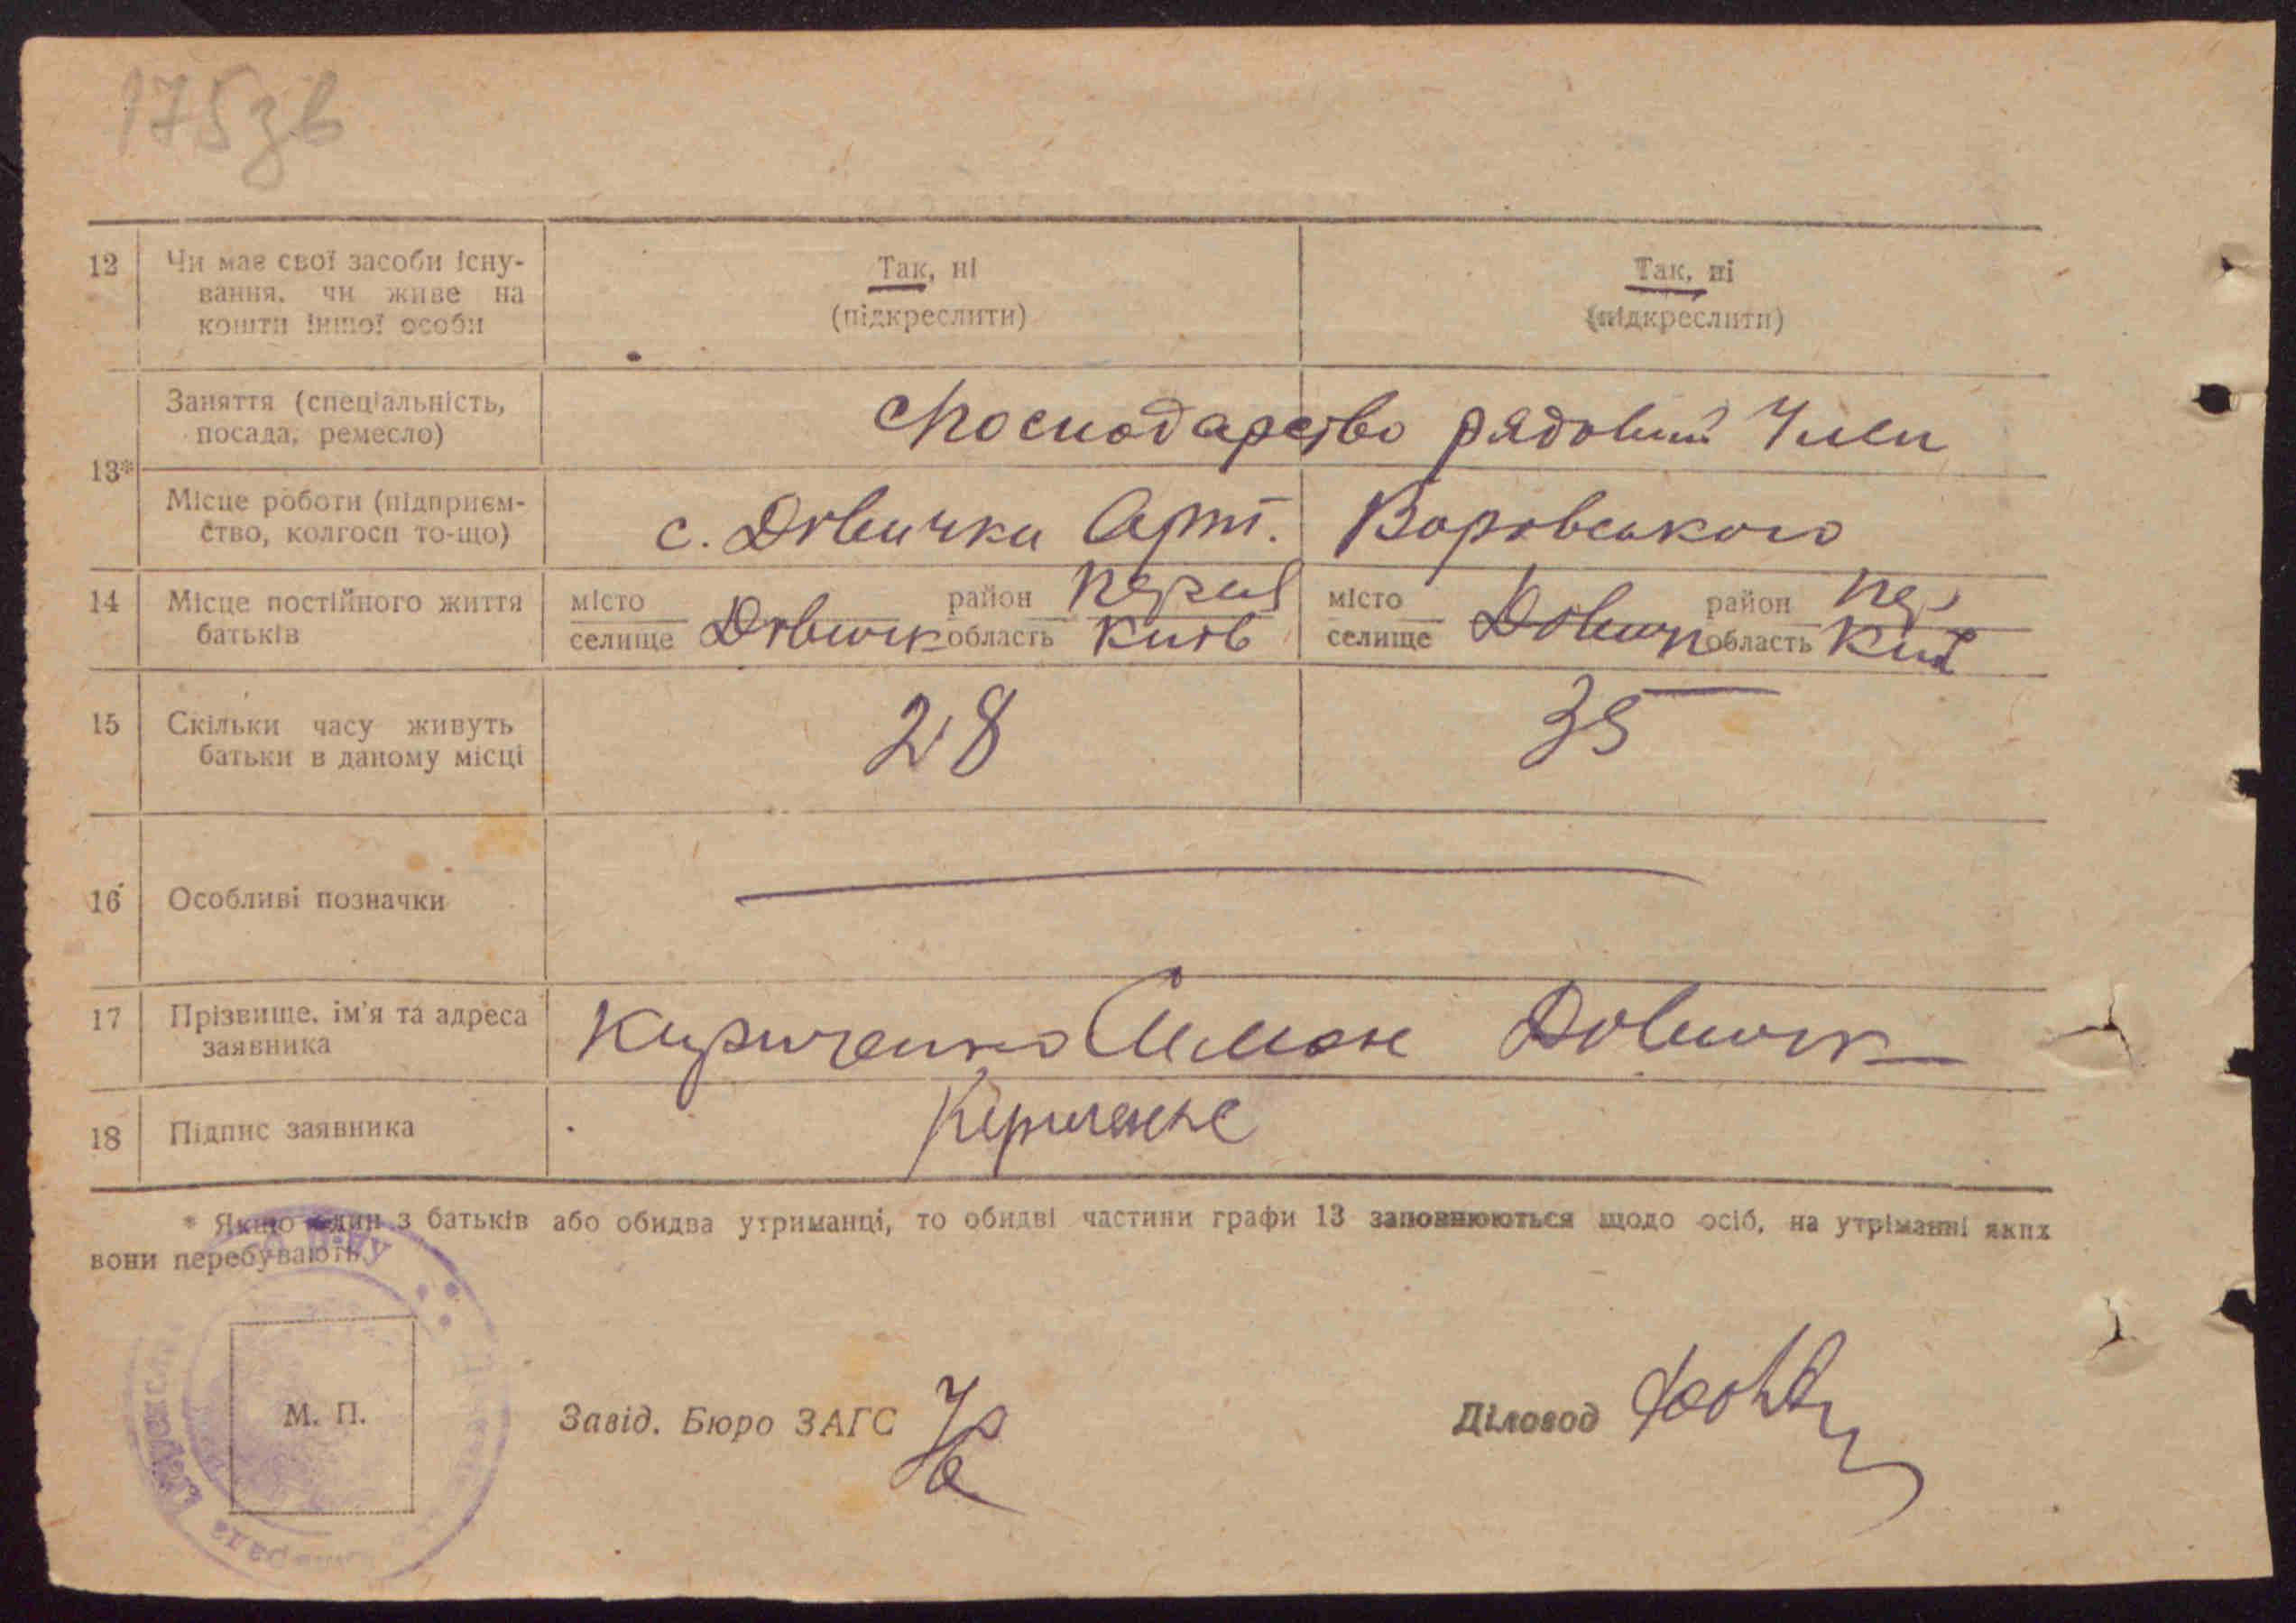 175зв
12 Чи має свої засоби існу- Так, ні Так, ні
вання, чи живе на (підкреслити) (підкреслити)
кошти іншої особи
13* Заняття (спеціальність, посада, ремесло) рядовий Член
Місце роботи (підприєм-
ство, колгосп то-що) с. Дівички Арт. Воровського
14 Місце постійного життя місто район місто район
батьків селище область Київ селище область Киї
15 Скільки часу живуть 28 35
батьки в даному місці
16 Особливі позначки
17 Прізвище, ім'я та адреса Кириченко Дівичк
заявника
18 Підпис заявника Кириченко
* Якщо один з батьків або обидва утриманці, то обидві частини графи 13 заповнюються щодо осіб, на утріманні яких
вони перебувають.
М. П. Завід. Бюро ЗАГС Діловод